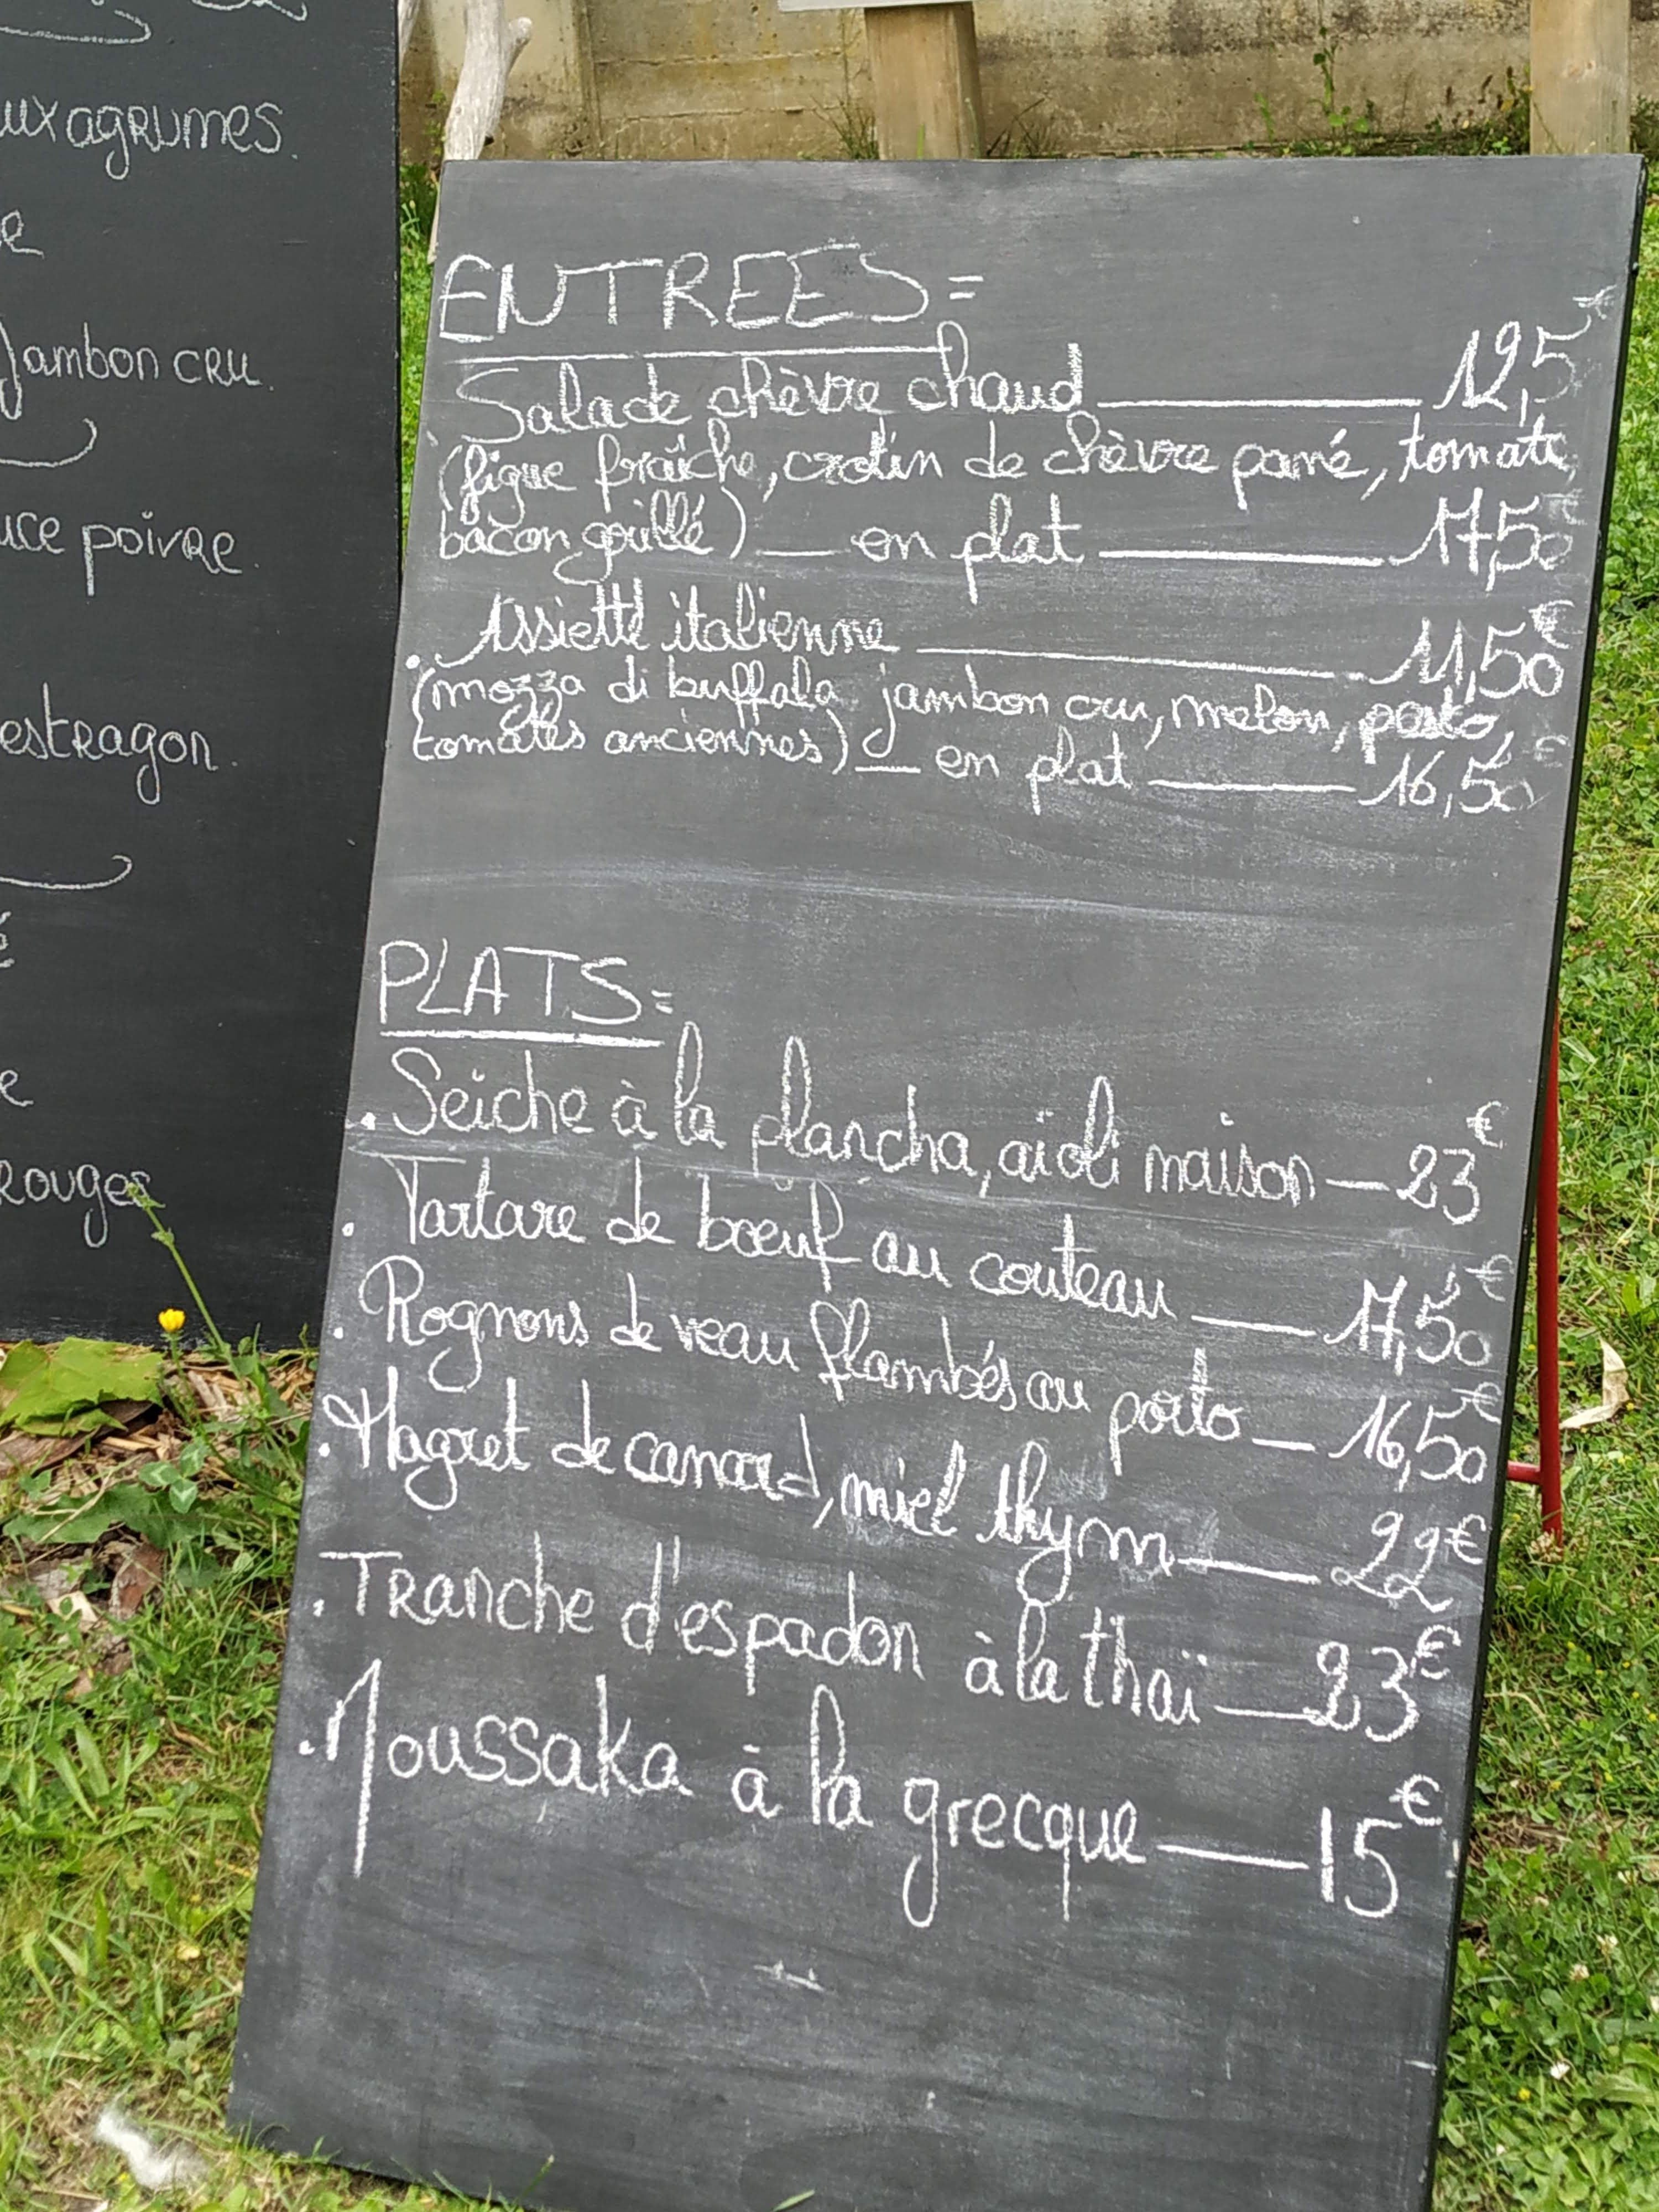 ux agrumes.
e
Jambon cru.
uce poivre.
estragon.
é
e
rouges
ENTREES=
Salade chèvre chaud 12,5€
(figue fraîche, crotin de chèvre pané, tomate,
bacon grillé) en plat 17,50€
. Assiette italienne 11,50€
(mozza di buffala, jambon cru, melon, pesto,
tomates anciennes) en plat 16,50€
PLATS=
. Seiche à la plancha, aïoli maison 23€
. Tartare de boeuf au couteau 17,50€
. Rognons de veau flambés au porto 16,50€
. Magret de canard, miel thym 22€
. Tranche d'espadon à la thaï 23€
. Moussaka à la grecque 15€